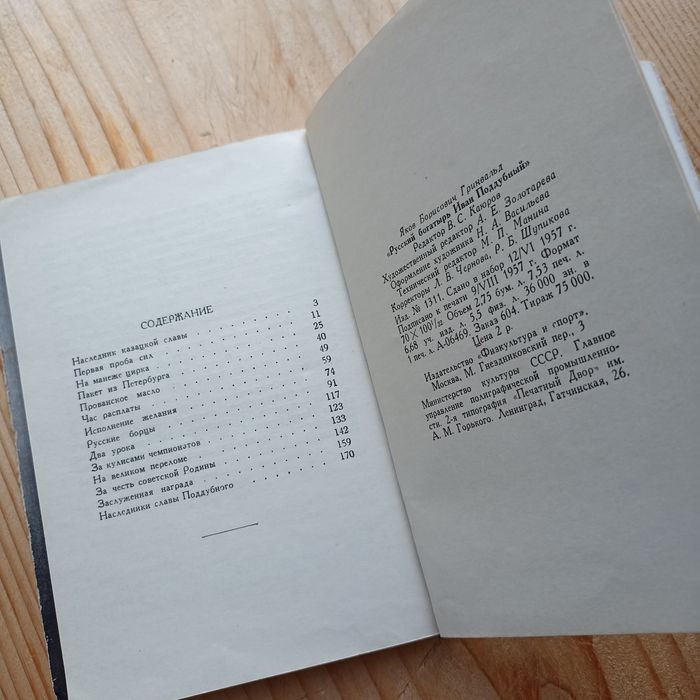 СОДЕРЖАНИЕ
Наследник казацкой славы . . . . . . . 3
Первая проба сил . . . . . . . 11
На манеже цирка . . . . . . . 25
Пакет из Петербурга . . . . . . . 40
Прованское масло . . . . . . . 49
Час расплаты . . . . . . . 59
Исполнение желания . . . . . . . 74
Русские борцы . . . . . . . 91
Два урока . . . . . . . 117
За кулисами чемпионатов . . . . . . . 123
На великом переломе . . . . . . . 133
За честь советской Родины . . . . . . . 142
Заслуженная награда . . . . . . . 159
Наследники славы Поддубного . . . . . . . 170
Яков Борисович Гринвальд
«Русский богатырь Иван Поддубный»
Редактор В. С. Каюров
Художественный редактор А. Е. Золотарева
Оформление художника Н. А. Васильева
Технический редактор М. П. Манина
Корректоры Л. В. Чернова, Р. Б. Шупикова
Изд. № 1311. Сдано в набор 12/VI 1957 г.
Подписано к печати 9/VIII 1957 г. Формат
70 X 100¹/₃₂ Объем 2,75 бум. л., 7,53 печ. л.
6,68 уч. изд. л., 5,5 физ. л., 36 000 зн. в
1 печ. л. А-06469. Заказ 604. Тираж 75 000.
Цена 2 р.
Издательство «Физкультура и спорт»,
Москва, М. Гнездниковский пер., 3
Министерство культуры СССР. Главное
управление полиграфической промышленно-
сти. 2-я типография «Печатный Двор» им.
А. М. Горького. Ленинград, Гатчинская, 26.